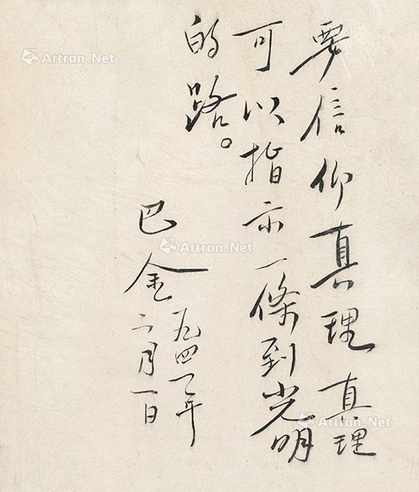 要信仰真理真理
可以指示一條到光明
的路。
巴金 一九四一年
二月一日
Artron.Net
Artron.Net
Artron.Net